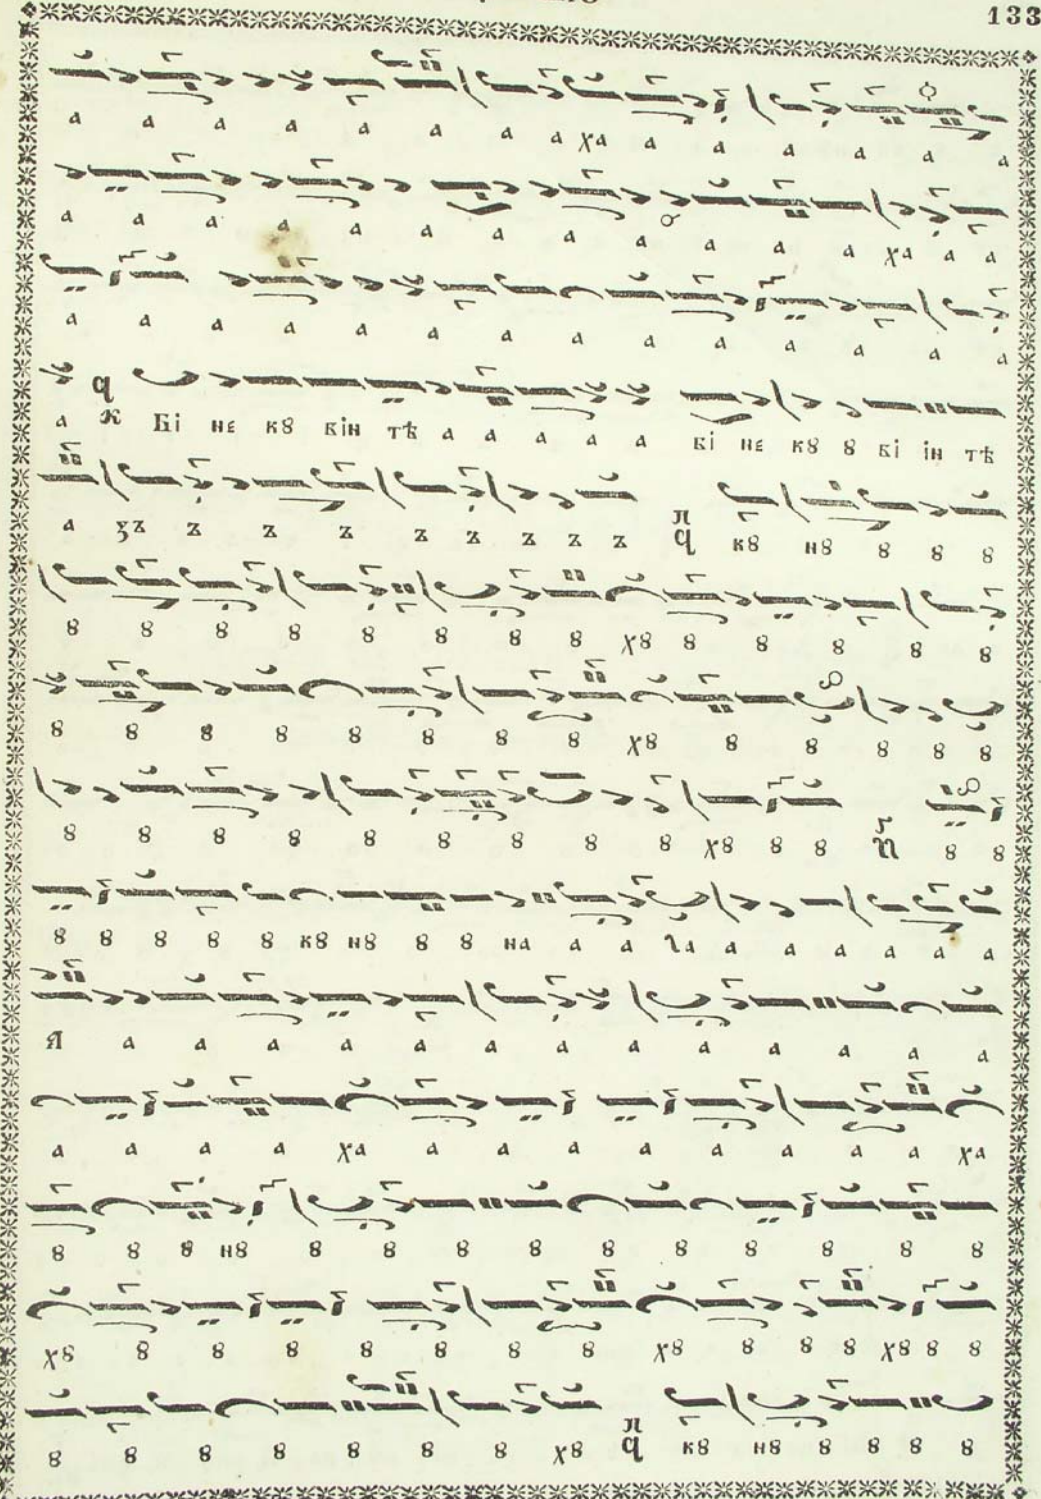 133
а а а а а а а а ха а а а а а а
а а а а а а а а а а а а ха а а
а а а а а а а а а а а а а а
а к Бі не кꙋ він тѣ а а а а а ві не кꙋ ꙋ ві ін тѣ
а ꙁъ ъ ъ ъ ъ ъ ъ ъ ъ п q кꙋ нꙋ ꙋ ꙋ ꙋ
ꙋ ꙋ ꙋ ꙋ ꙋ ꙋ ꙋ ꙋ хꙋ ꙋ ꙋ ꙋ ꙋ ꙋ
ꙋ ꙋ ꙋ ꙋ ꙋ ꙋ ꙋ ꙋ хꙋ ꙋ ꙋ ꙋ ꙋ ꙋ
ꙋ ꙋ ꙋ ꙋ ꙋ ꙋ ꙋ ꙋ ꙋ хꙋ ꙋ ꙋ ꙋ ꙋ
ꙋ ꙋ ꙋ ꙋ ꙋ кꙋ нꙋ ꙋ ꙋ на а а га а а а а а
Я а а а а а а а а а а а а а
а а а а ха а а а а а а а а ха
ꙋ ꙋ ꙋ нꙋ ꙋ ꙋ ꙋ ꙋ ꙋ ꙋ ꙋ ꙋ ꙋ ꙋ
хꙋ ꙋ ꙋ ꙋ ꙋ ꙋ ꙋ ꙋ хꙋ ꙋ ꙋ ꙋ хꙋ ꙋ ꙋ
ꙋ ꙋ ꙋ ꙋ ꙋ ꙋ ꙋ хꙋ п q кꙋ нꙋ ꙋ ꙋ ꙋ ꙋ